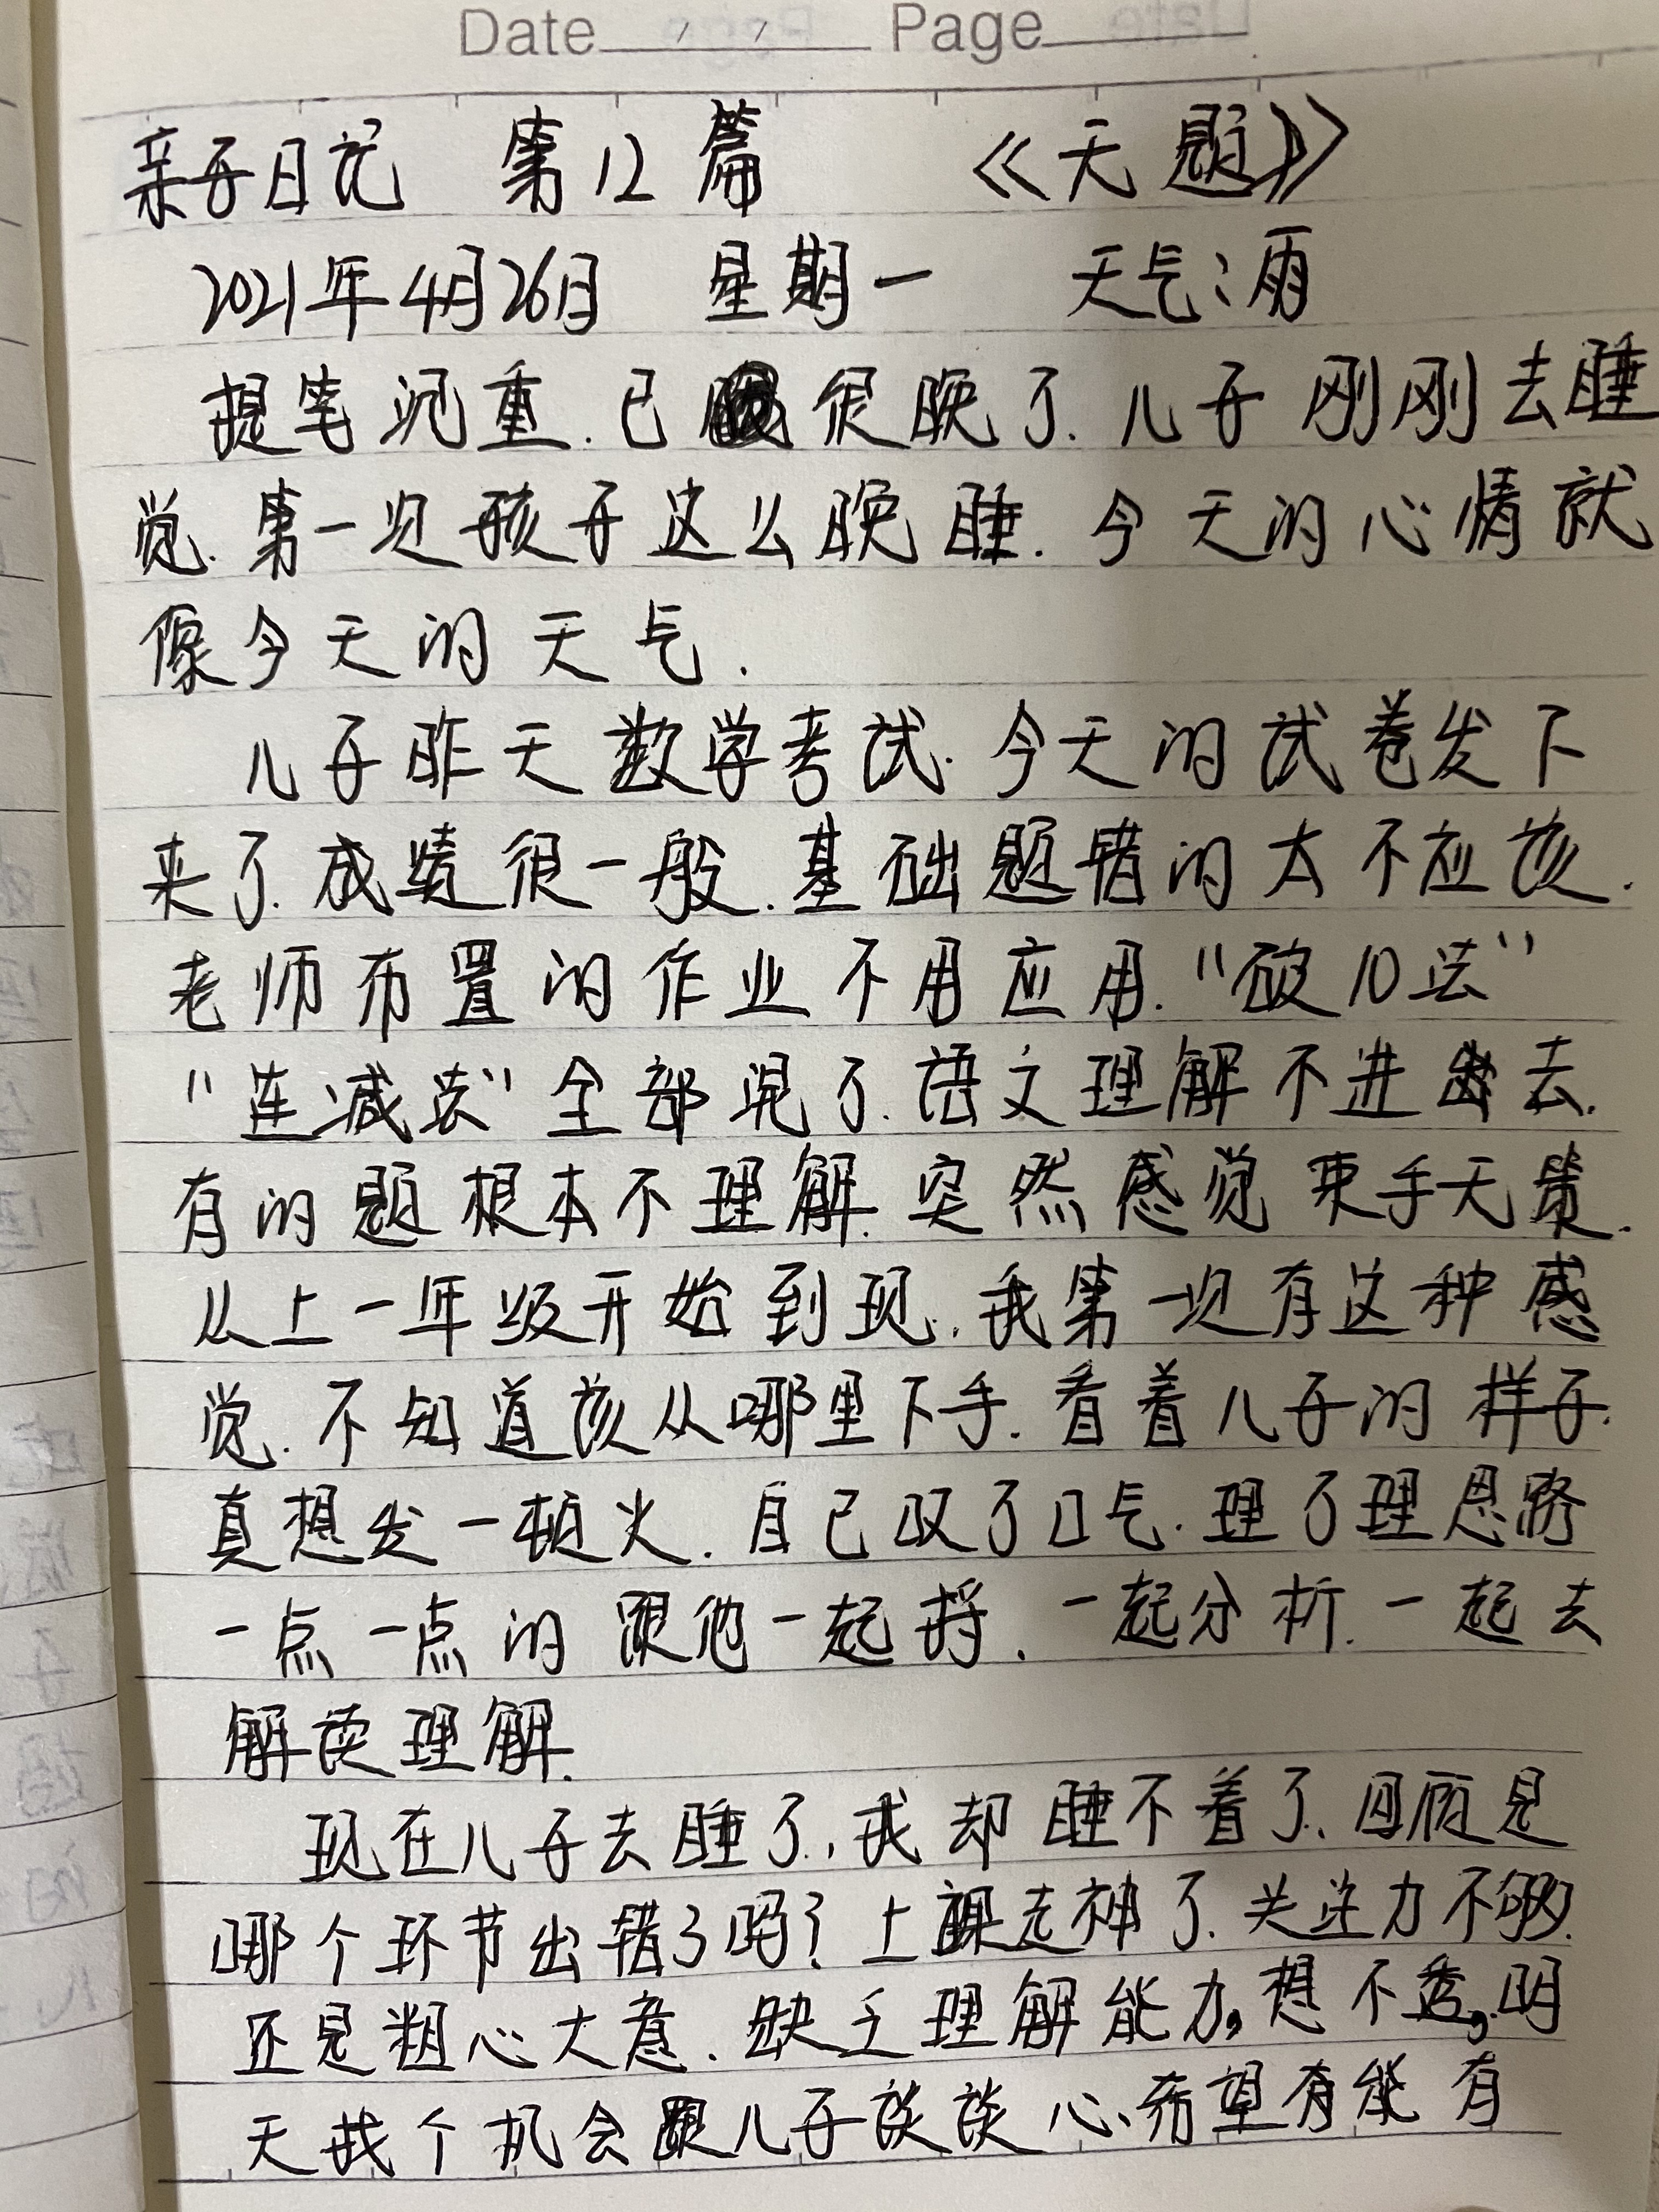 Date / / Page
亲子日记 第12篇 《无题》
2021年4月26日 星期一 天气:雨
提笔沉重.已很晚了.儿子刚刚去睡
觉.第一次孩子这么晚睡.今天的心情就
像今天的天气.
儿子昨天数学考试.今天的试卷发下
来了.成绩很一般.基础题错的太不应该.
老师布置的作业不用应用.“破10法”
“连减法”全部混了.语文理解不进去.
有的题根本不理解.突然感觉束手无策.
从上一年级开始到现.我第一次有这种感
觉.不知道该从哪里下手.看着儿子的样子.
真想发一顿火.自己叹了口气.理了理思路
一点一点的跟他一起捋.一起分析.一起去
解读理解.
现在儿子去睡了.,我却睡不着了.回顾是
哪个环节出错了吗?上课走神了.关注力不够.
还是粗心大意.缺乏理解能力,想不透,明
天找个机会跟儿子谈谈心、希望有能有